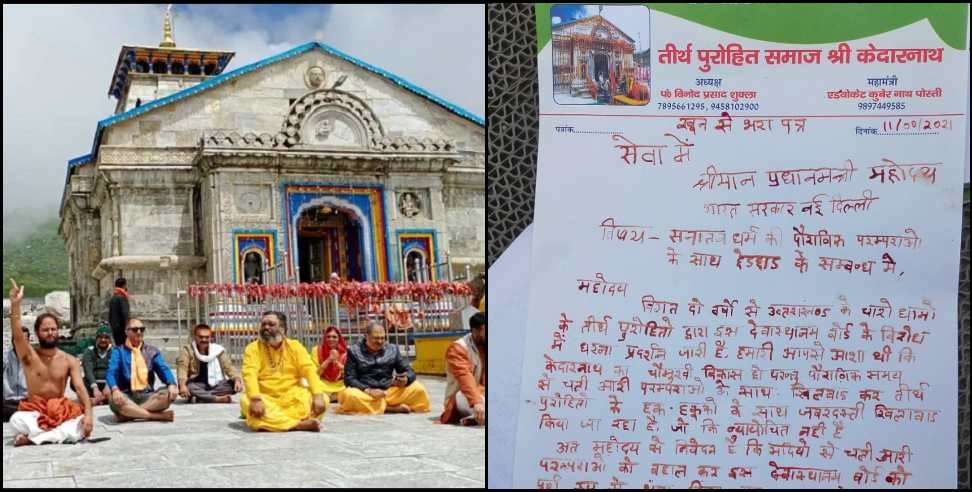 तीर्थ पुरोहित समाज श्री केदारनाथ
अध्यक्ष
पं० विनोद प्रसाद शुक्ला
7895661295, 9458102900
महामंत्री
एडवोकेट कुबेर नाथ पोस्ती
9897449585
पत्रांक
दिनांक 11/00/2021
खून से भरा पत्र
सेवा में
श्रीमान प्रधानमन्त्री महोदय
भारत सरकार नई दिल्ली
विषय - सनातन धर्म की पौराणिक परम्पराओ
के साथ छेडछाड के सम्बन्ध मे,
महोदय
विगत दो वर्षो से उत्तराखण्ड के चारो धामो
के तीर्थ पुरोहितो द्वारा इस देवास्थानम् बोर्ड के विरोध
में धरना प्रदर्शन जारी है, हमारी आपसे आशा थी कि
केदारनाथ का चौमुखी विकास हो परन्तु पौराणिक समय
से चली आरी परम्पराओ के साथ खिलवाड कर तीर्थ
पुरोहितो के हक-हकूको के साथ जबरदस्ती खिलवाड
किया जा रहा है, जो कि न्यायोचित नही है
अत महोदय से निवेदन है कि सदियो से चली आरी
परम्पराओ को बहाल कर इस देवास्थानम बोर्ड को